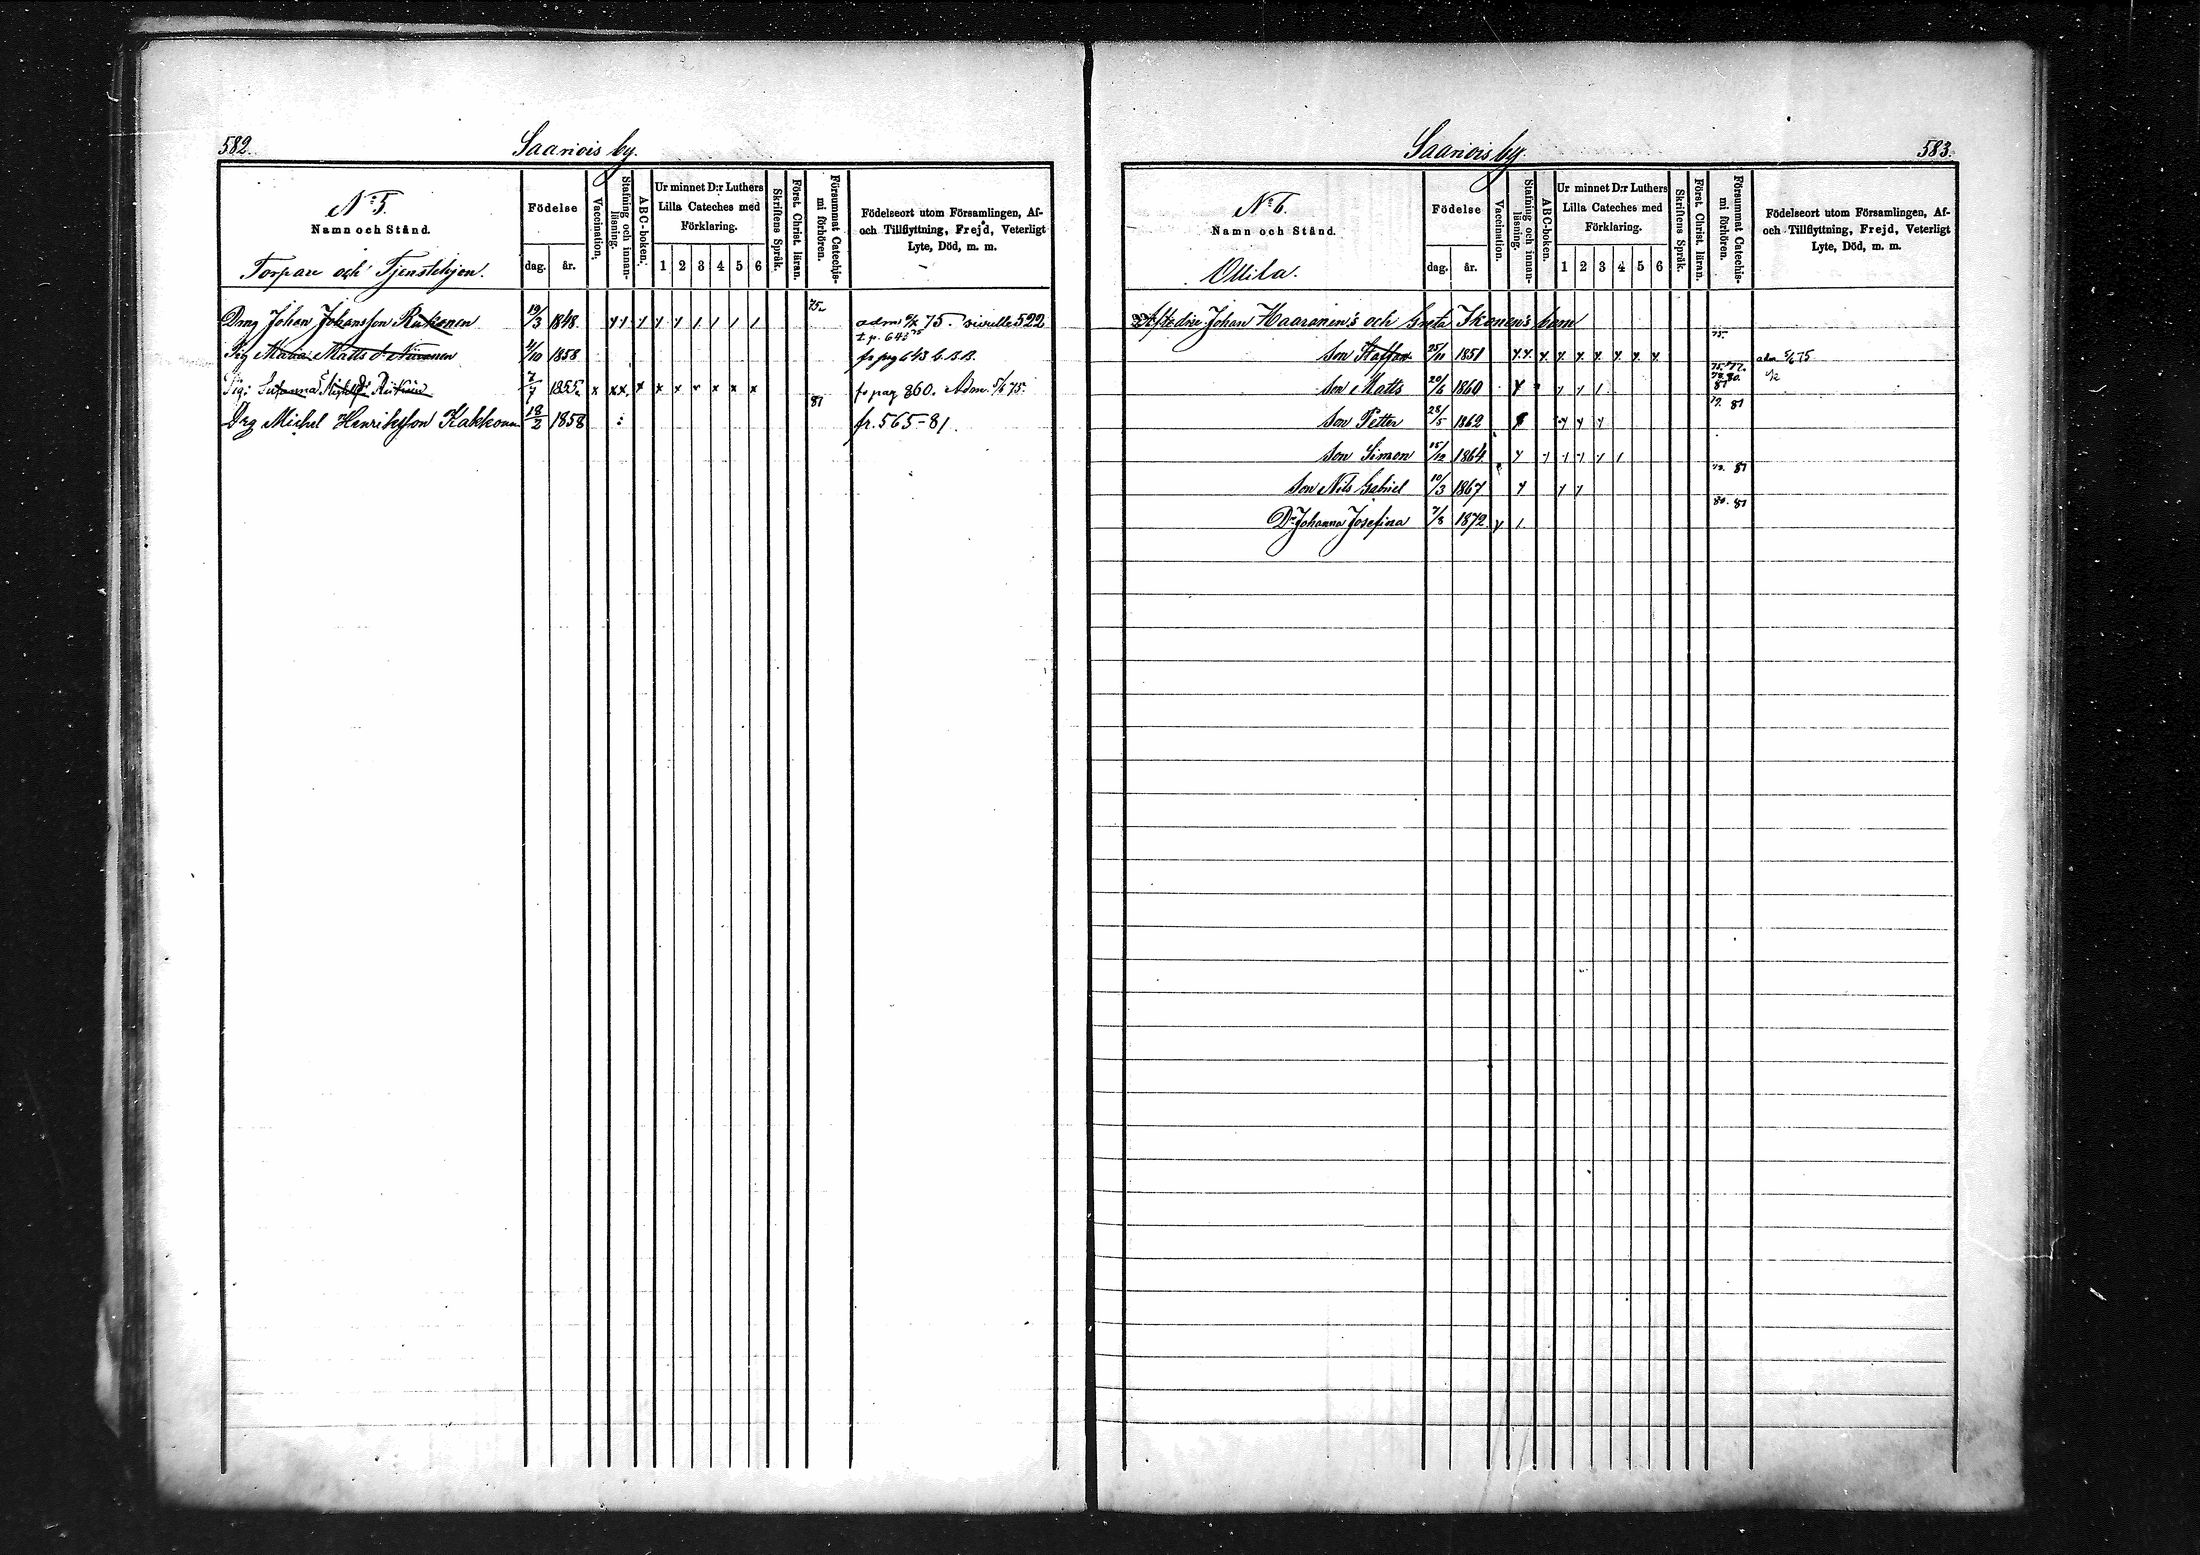 582. Saariois by.
N:o 5.
Namn och Stånd.
Torpare och Tjenstehjon.
Födelse
dag. år.
Vaccination.
Stafning och innanläsning.
ABC-boken.
Ur minnet D:r Luthers Lilla Cateches med Förklaring.
1 2 3 4 5 6
Skriftens Språk.
Först. Christ. läran.
Försummat Catechismi förhören.
Födelseort utom Församlingen, Af- och Tillflyttning, Frejd, Veterligt Lyte, Död, m. m.
Drng Johan Johansson 19/3 1848 75. 75. 522
t p. 643 75
Pig Maria Matts d. Niironen /10 1858 fr pag 643
Pig: Susanna 7/7 1855 x xx x x x x x x x fr pag 360. Adm. 5/6 75.
Drg Michel Henriksson Kakkonen 18/2 1858 81 fr. 565-81.
Saariois by. 583.
N:o 6.
Namn och Stånd.
Ollila.
Födelse
dag. år.
Vaccination.
Stafning och innanläsning.
ABC-boken.
Ur minnet D:r Luthers Lilla Cateches med Förklaring.
1 2 3 4 5 6
Skriftens Språk.
Först. Christ. läran.
Försummat Catechismi förhören.
Födelseort utom Församlingen, Af- och Tillflyttning, Frejd, Veterligt Lyte, Död, m. m.
Johan Haaranen's och Greta Ikonen's barn
Son Staffan 25/11 1851 75. adm 5/6 75
Son Matts 20/6 1860 75. 77. 80. 81
Son Petter 28/5 1862 79. 81
Son Simon 15/12 1864
Son Nils Gabriel 10/3 1867 81
Dr Johanna Josefina 7/8 1872 80. 81